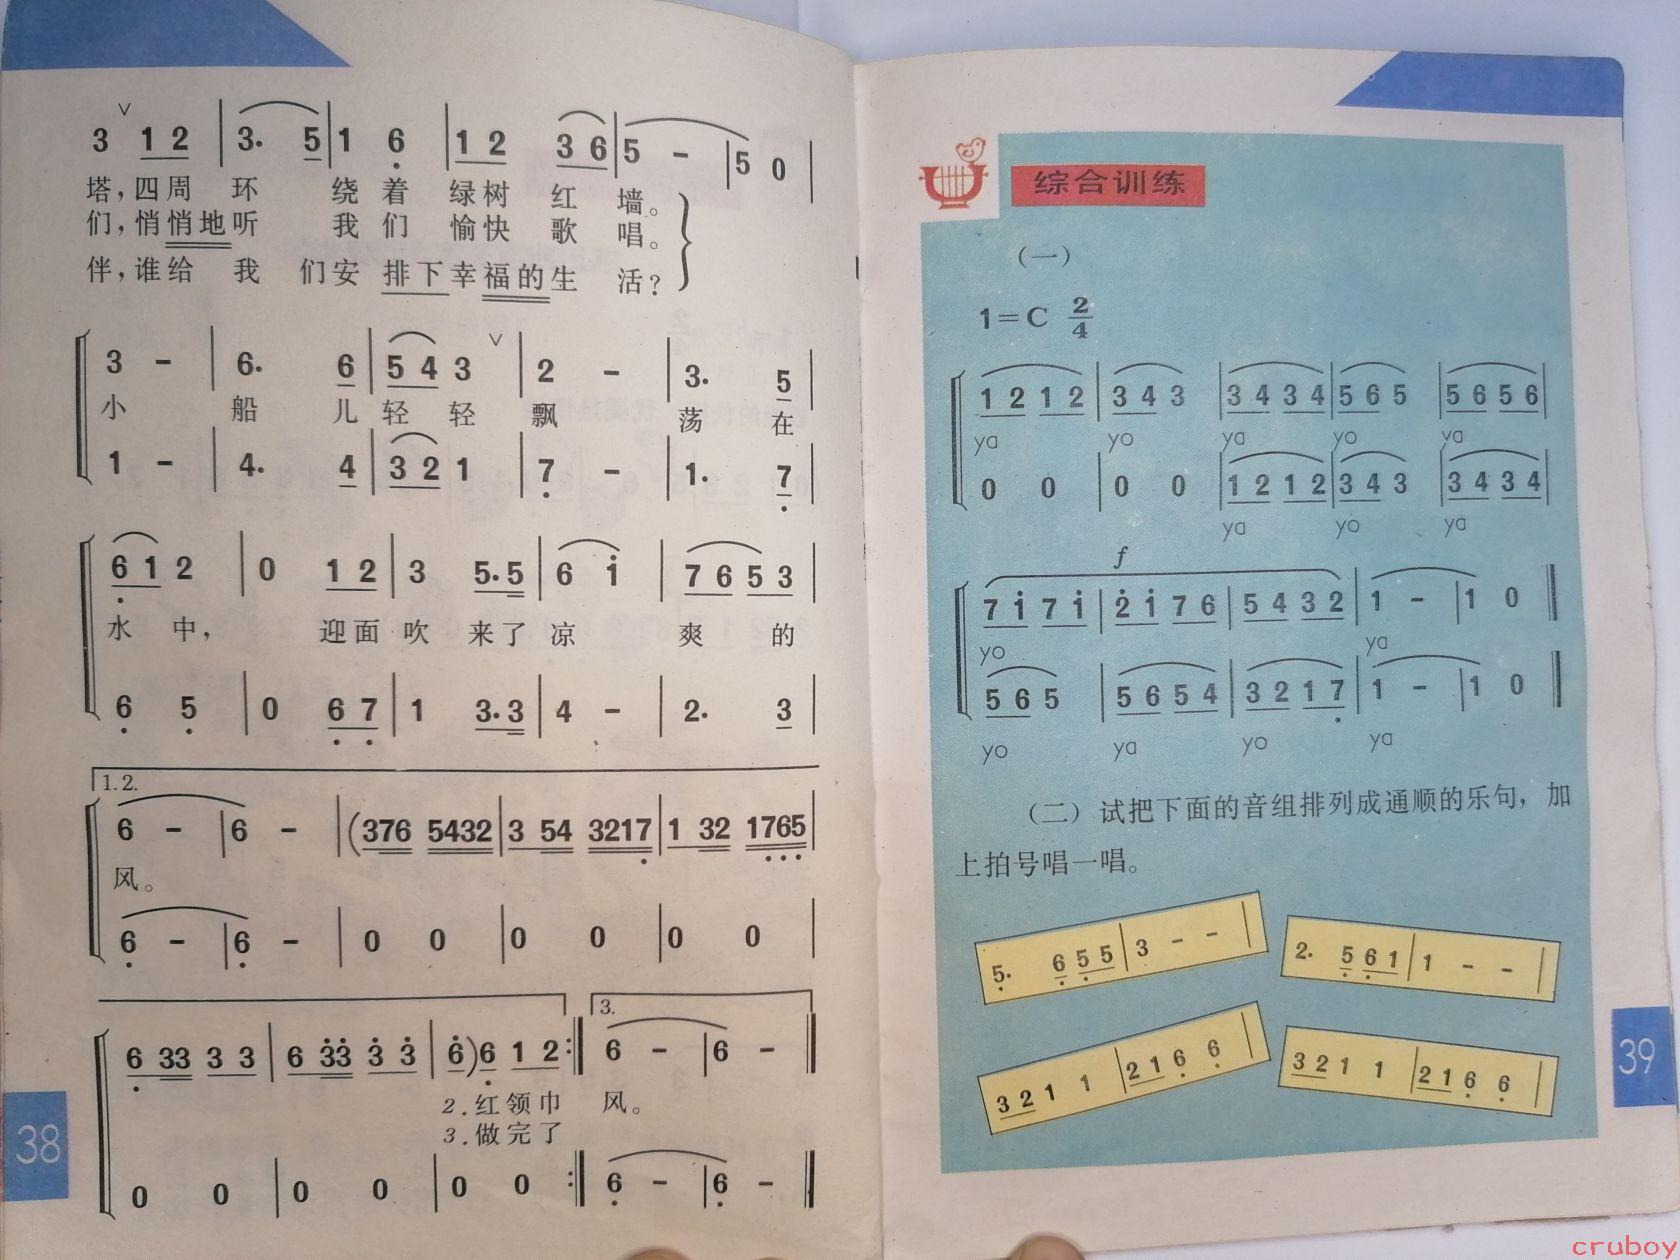 3 ∨ 1 2 | 3. 5 | 1 6̣ | 1 2 3 6 | 5 - | 5 0 |
塔，四周 环 绕 着 绿树 红 墙。
们，悄悄地听 我 们 愉快 歌 唱。
伴，谁给 我 们安 排下幸福的生 活？
3 - | 6. 6 | 5 4 3 ∨ | 2 - | 3. 5 |
小 船 儿 轻 轻 飘 荡 在
1 - | 4. 4 | 3 2 1 | 7̣ - | 1. 7̣ |
6̣ 1 2 | 0 1 2 | 3 5. 5 | 6 i | 7 6 5 3 |
水 中， 迎面 吹 来了 凉 爽 的
6̣ 5̣ | 0 6̣ 7̣ | 1 3. 3 | 4 - | 2. 3 |
1.2.
6 - | 6 - | (376 5432 | 3 54 3217̣ | 1 32 17̣6̣5̣ |
风。
6̣ - | 6̣ - | 0 0 | 0 0 | 0 0 |
3.
6̣ 33 3 3 | 6 3̇3̇ 3̇ 3̇ | 6̇) 6̣ 1 2 :‖ 6 - | 6 - ‖
2.红领巾 风。
3.做完了
0 0 | 0 0 | 0 0 :‖ 6̣ - | 6̣ - ‖
38
综合训练
（一）
1=C 2/4
1 2 1 2 | 3 4 3 | 3 4 3 4 | 5 6 5 | 5 6 5 6 |
ya yo ya yo ya
0 0 | 0 0 | 1 2 1 2 | 3 4 3 | 3 4 3 4 |
ya yo ya
f
7 i 7 i | 2̇ i 7 6 | 5 4 3 2 | 1 - | 1 0 ‖
yo ya
5 6 5 | 5 6 5 4 | 3 2 1 7̣ | 1 - | 1 0 ‖
yo ya yo ya
（二）试把下面的音组排列成通顺的乐句，加
上拍号唱一唱。
5̣. 6̣ 5̣ 5 | 3 - - |
2. 5̣ 6̣ 1 | 1 - - |
3 2 1 1 | 2 1 6̣ 6̣ |
3 2 1 1 | 2 1 6̣ 6̣ |
39
cruboy